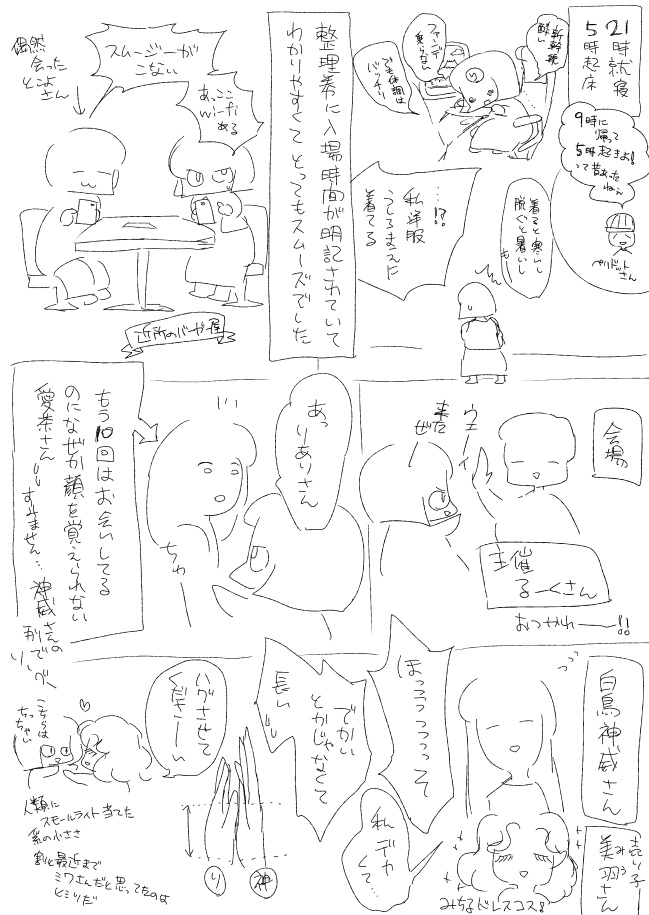 21時就寝
5時起床
9時に
帰って
5時起きよ!
って昔あった
ねぇ
ペリドットさん
新幹線
酔い
ファンデ
乗らない
でも体調は
バッチリ
着ると寒いし
脱ぐと暑いし
…!?
私洋服
うしろまえに
着てる
整理券に入場時間が明記されていて
わかりやすくてとってもスムーズでした
スムージーが
こない
偶然
会った
とこよ
さん
あっここ
wi-fi
ある
近所のバーガー屋
会場
ウェーイ
来たぜ
主催
るーくさん
おつかれー!!
あっ
りありさん
ちゅ
もう10回はお会いしてる
のになぜか顔を覚えられない
愛奈さん…すみません…神威さんの
列で
白鳥神威さん
売り子
美羽さん
みう
ほっっっっっって
でかい
とかじゃなくて
長い
私デカ
くて…
みちるドレスコス!
ハグさせて
くださーい
り
神
こちらは
ちっちゃい
人類に
スモールライト当てた
系の小ささ
割と最近まで
ミワさんだと思ってたのよ
ヒミツだ